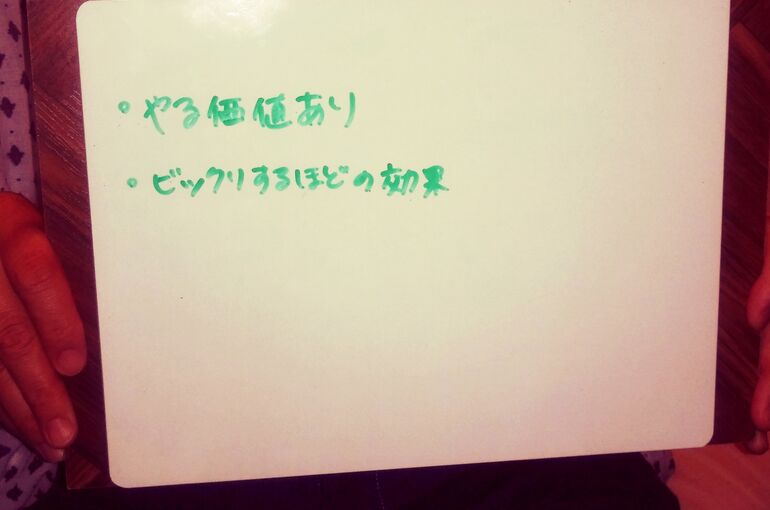 ・やる価値あり
・ビックリするほどの効果